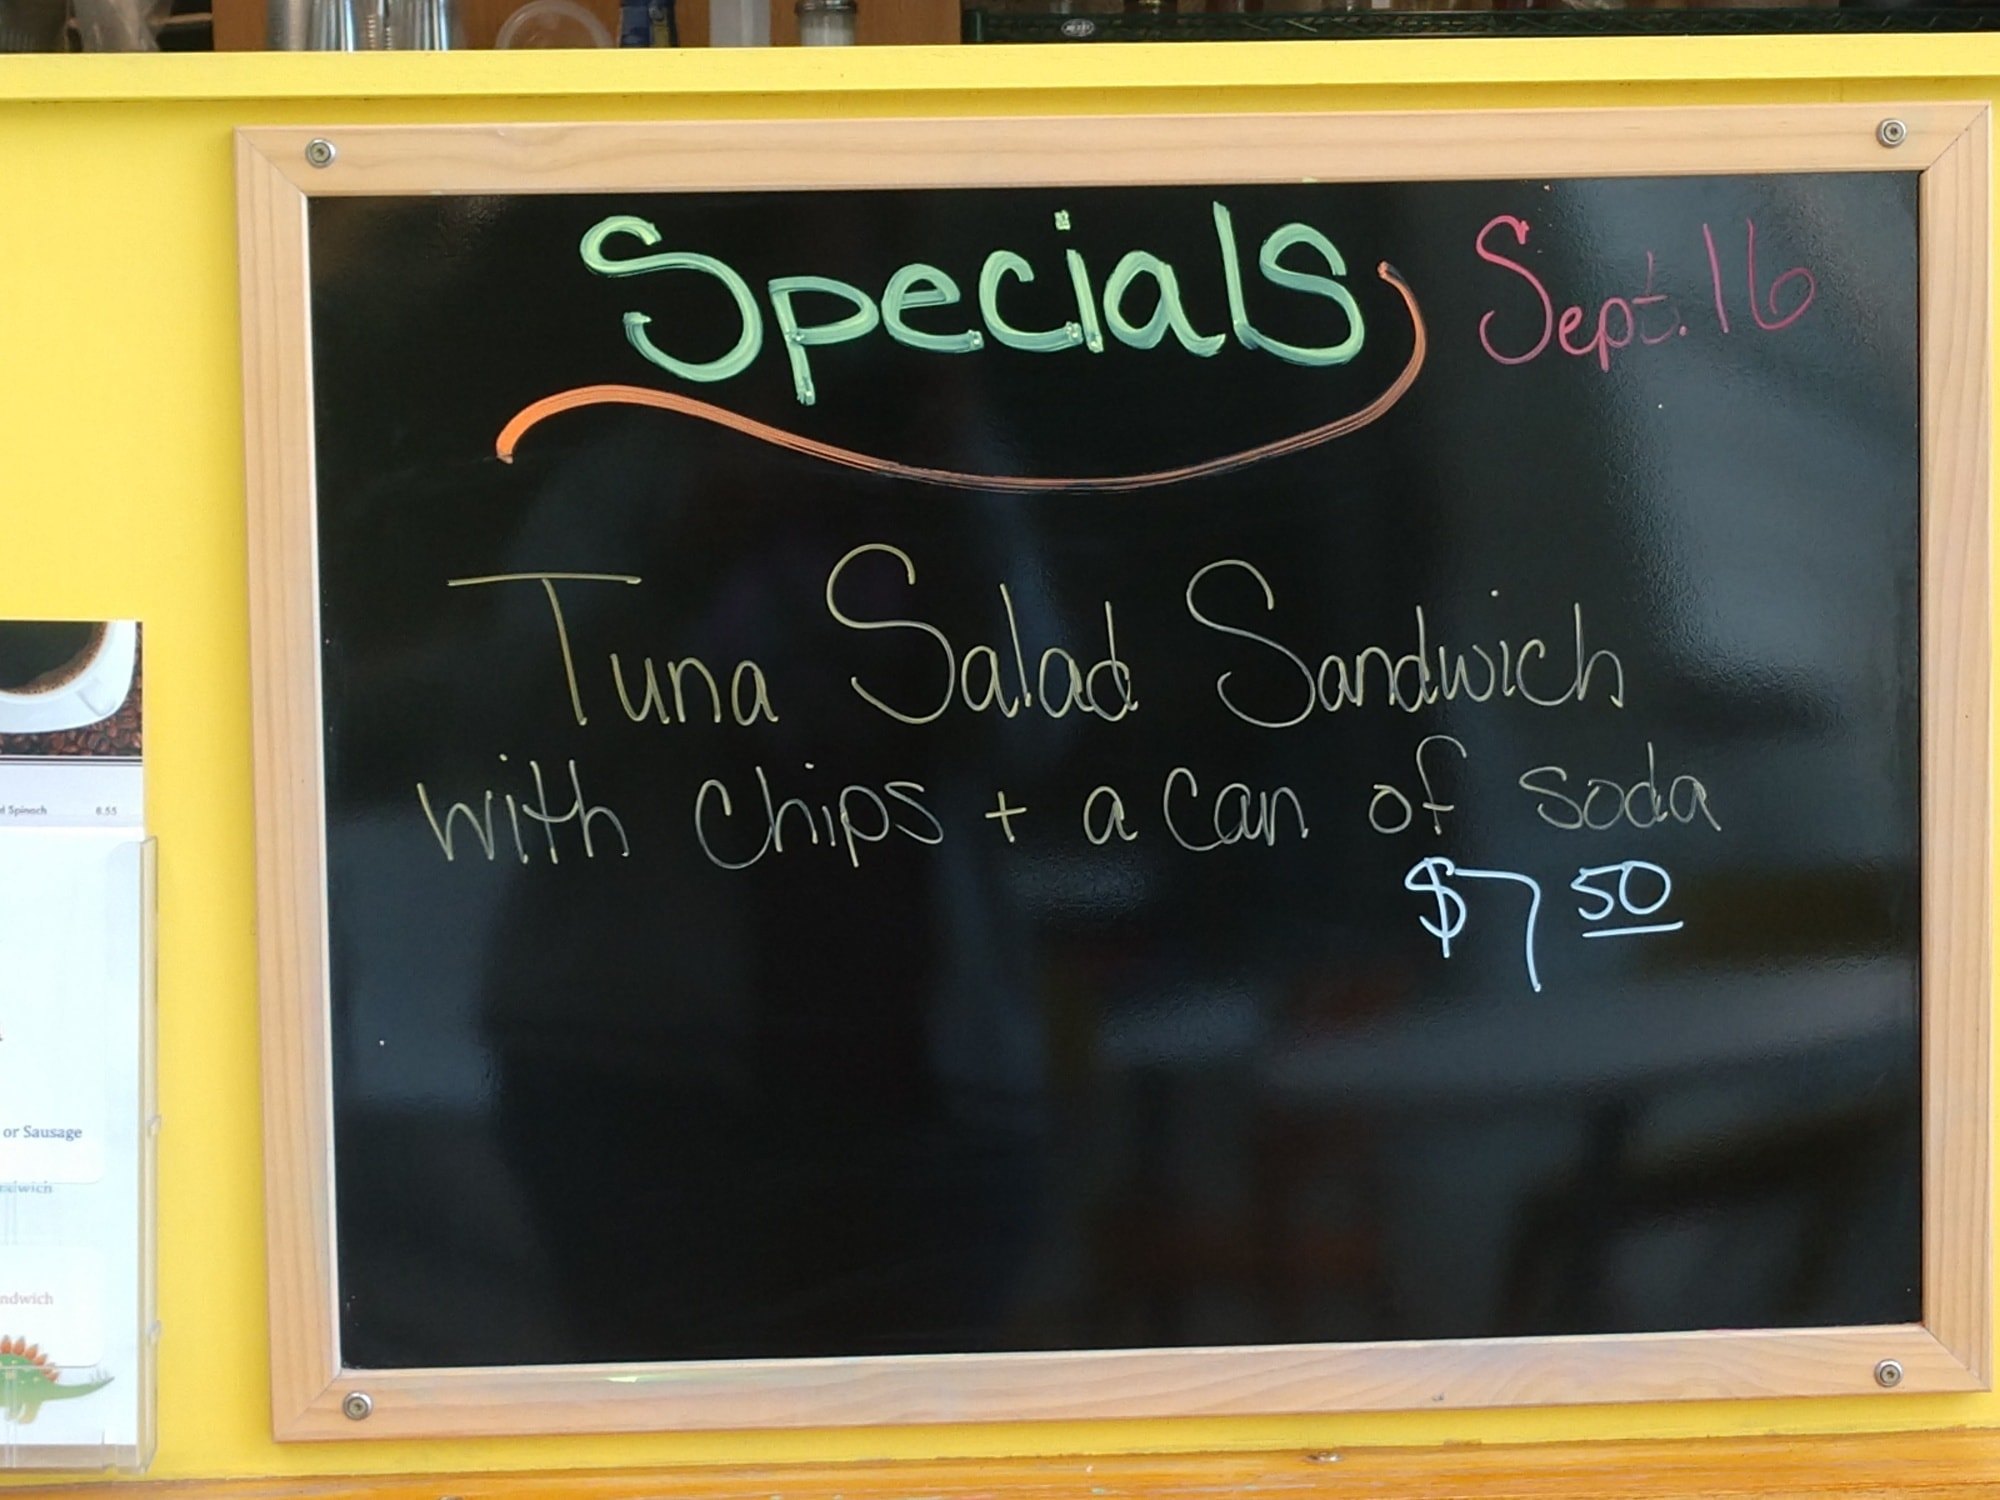 Specials
Sept. 16
Tuna Salad Sandwich
with chips + a can of soda
$7 50
Spinach 6.55
or Sausage